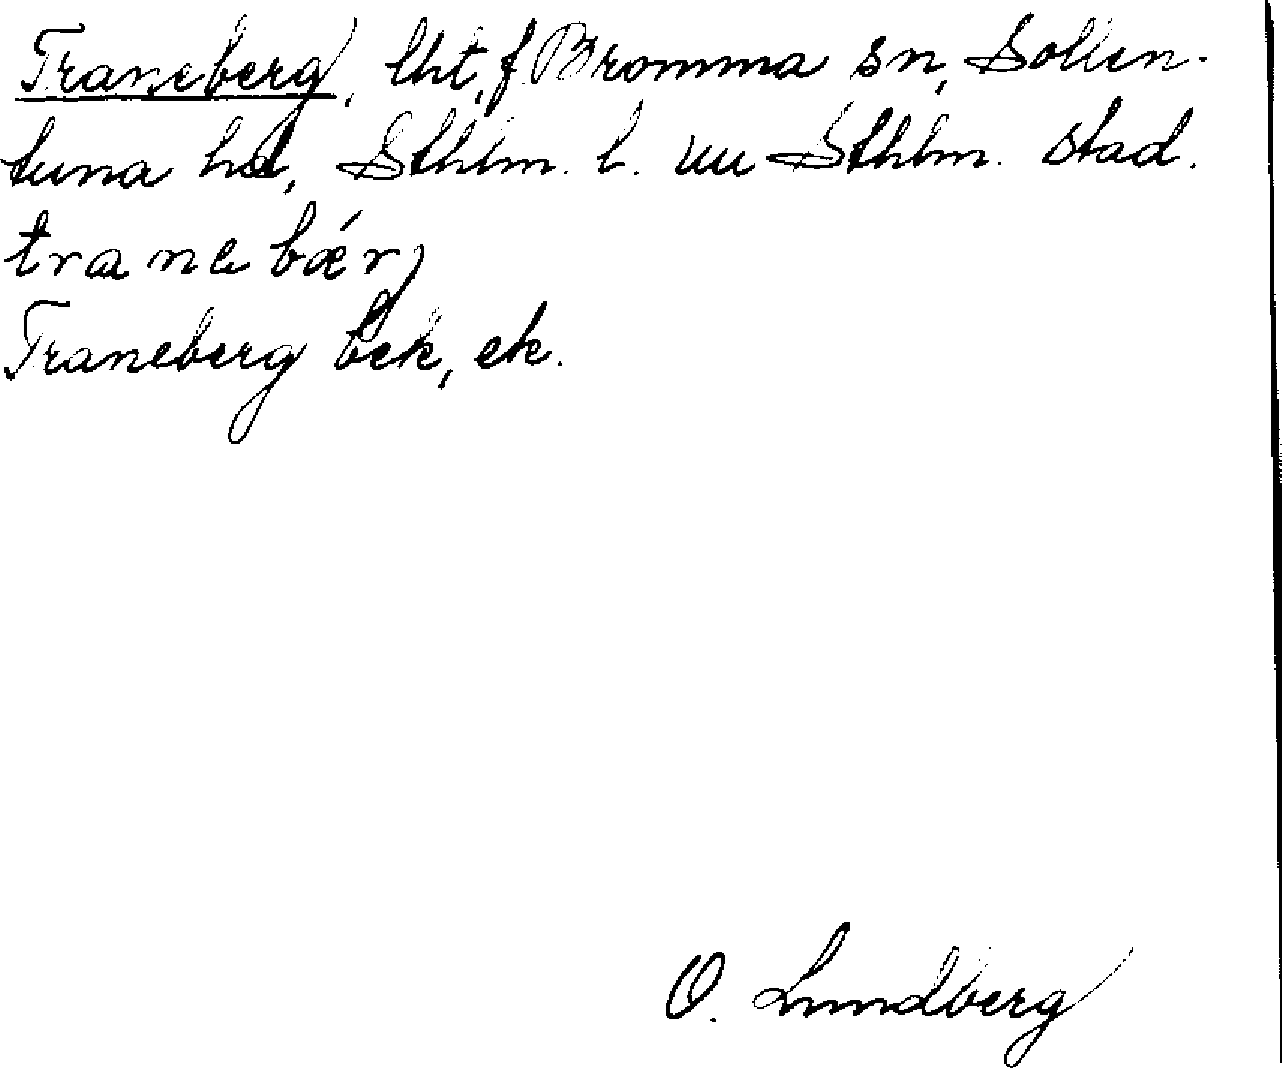 Traneberg, lht, f. Bromma sn, Sollen-
tuna hd, Sthlm. l. nu Sthlm. stad.
tranebǽrj
Traneberg bek, ek.
O. Lundberg